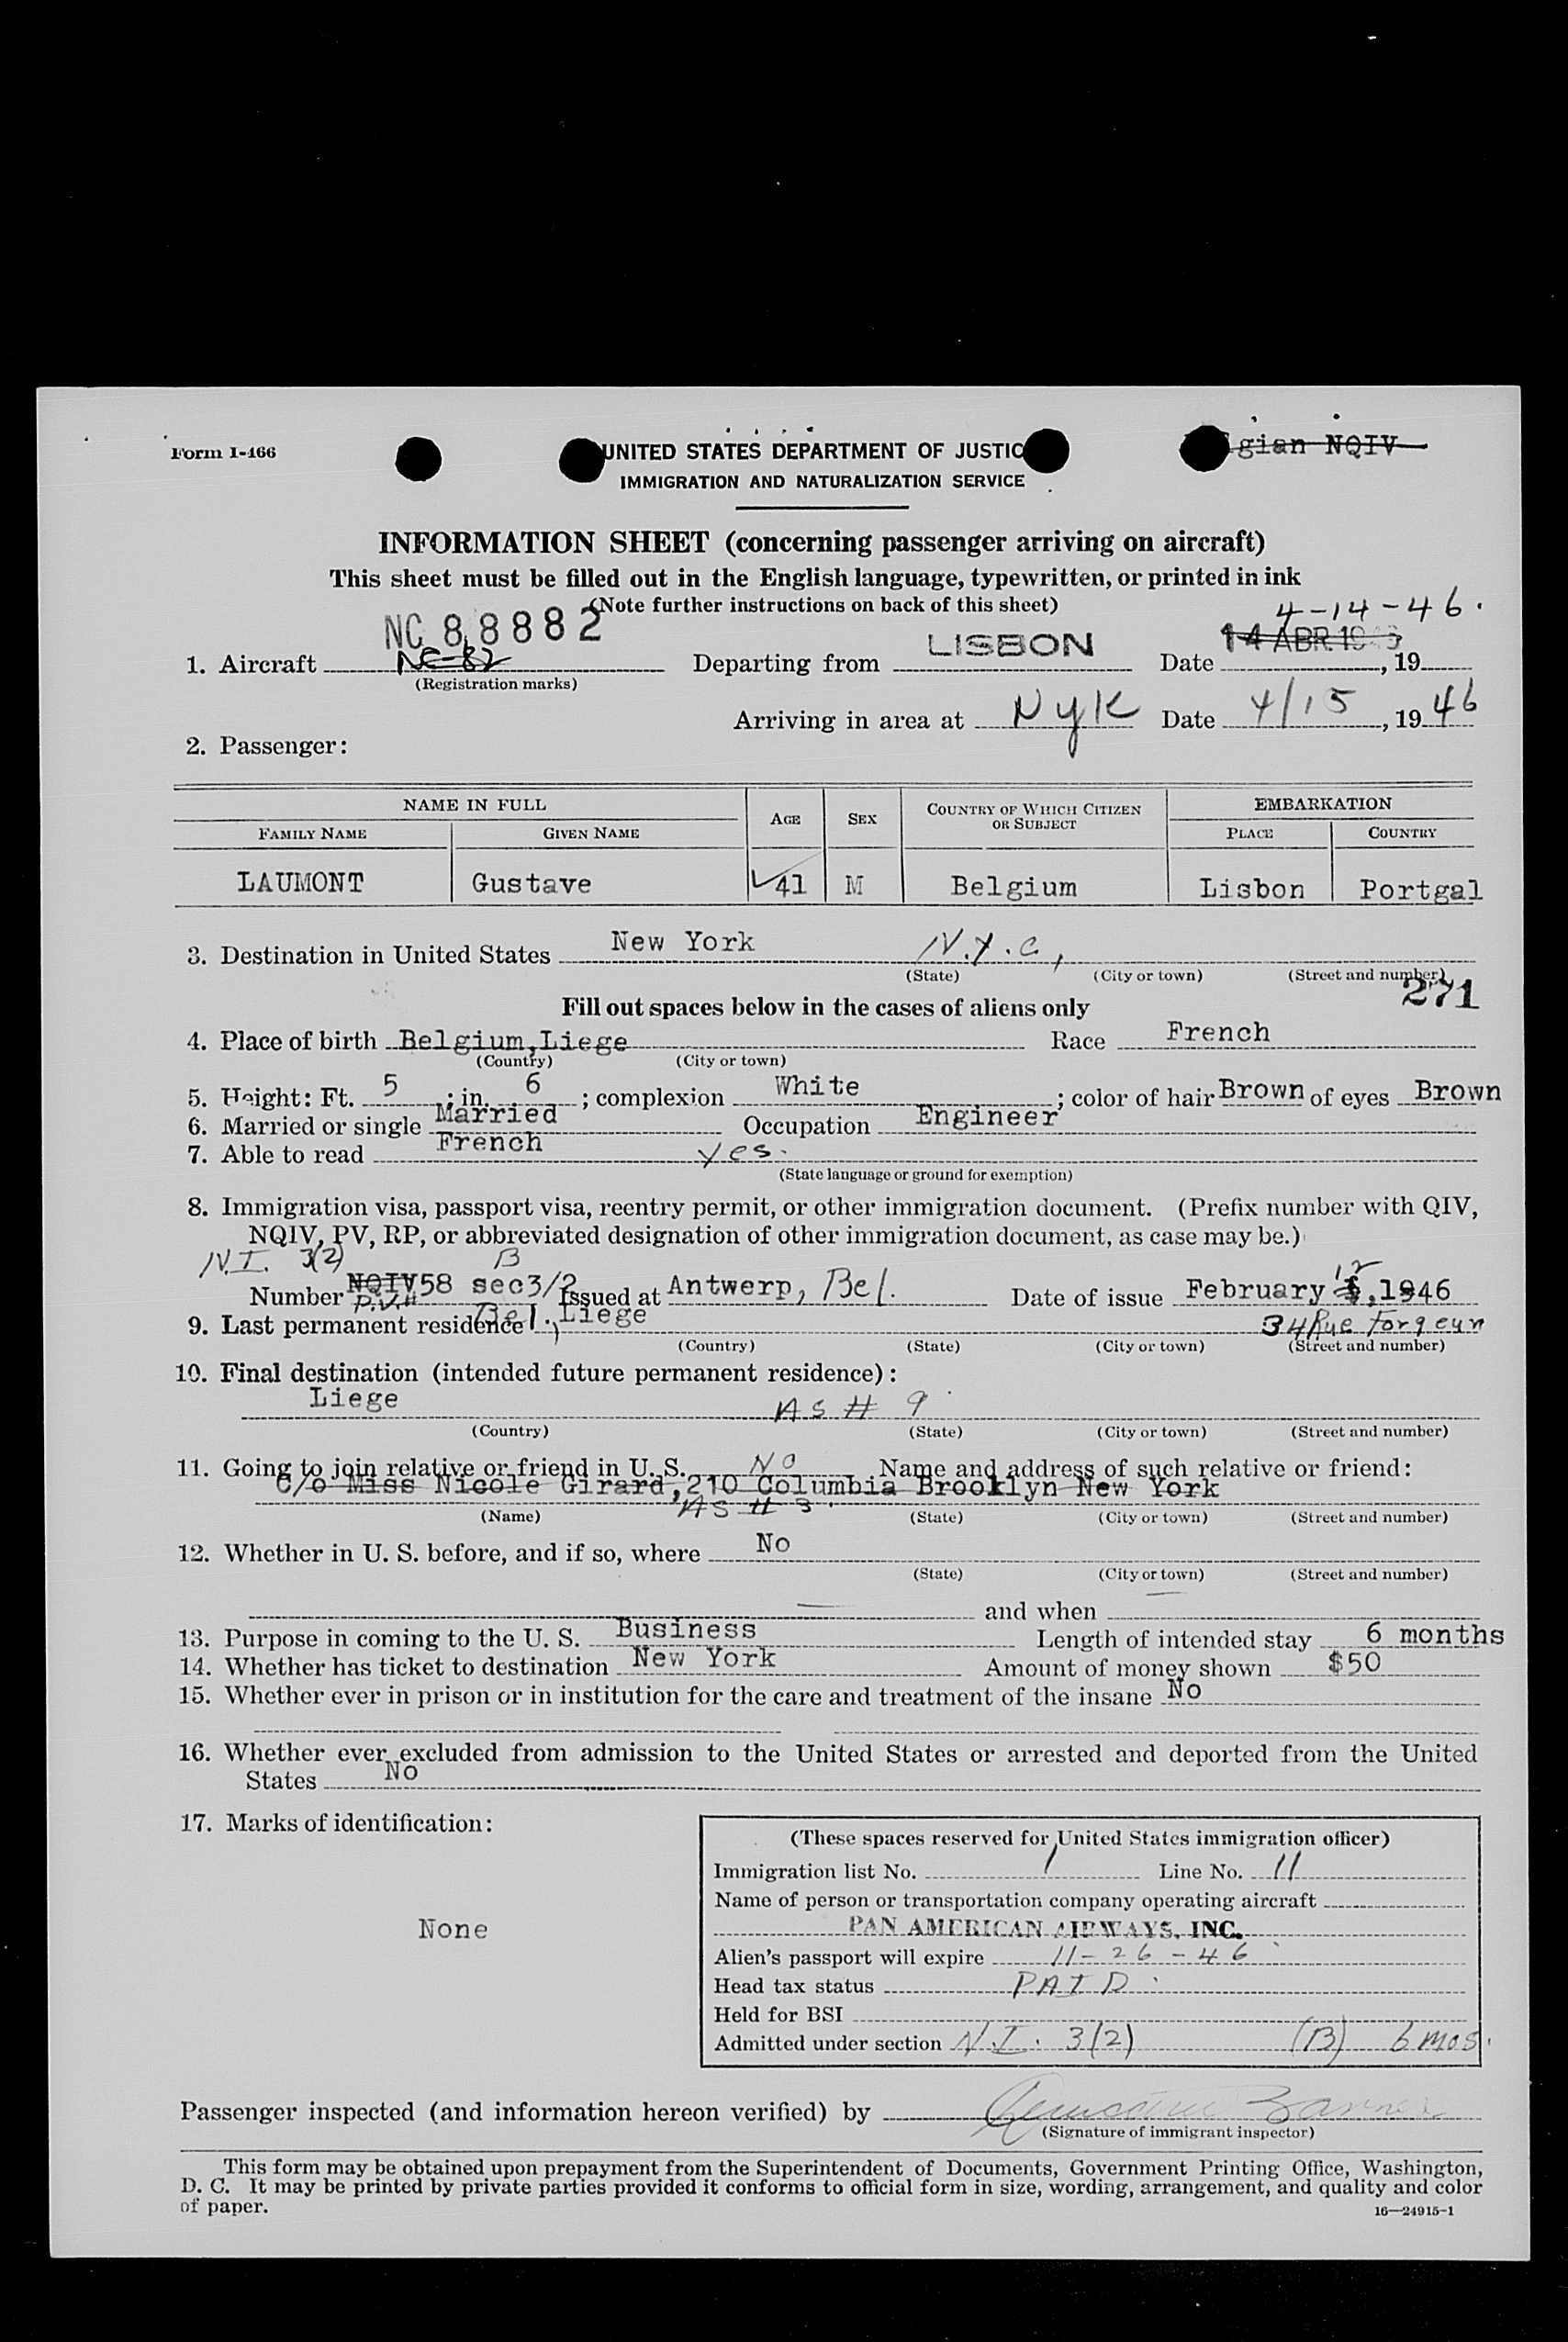 Form I-466
UNITED STATES DEPARTMENT OF JUSTIC
gian NQIV
IMMIGRATION AND NATURALIZATION SERVICE
INFORMATION SHEET (concerning passenger arriving on aircraft)
This sheet must be filled out in the English language, typewritten, or printed in ink
(Note further instructions on back of this sheet)
NC 88882 LISBON 4-14-46.
1. Aircraft NC-82 Departing from Date 14 ABR 19 , 19
(Registration marks)
Arriving in area at Nyk Date 4/15, 19 46
2. Passenger:
NAME IN FULL AGE SEX COUNTRY OF WHICH CITIZEN OR SUBJECT EMBARKATION
FAMILY NAME GIVEN NAME PLACE COUNTRY
LAUMONT Gustave 41 M Belgium Lisbon Portgal
3. Destination in United States New York N.Y.C,
(State) (City or town) (Street and number)
271
Fill out spaces below in the cases of aliens only
4. Place of birth Belgium,Liege Race French
(Country) (City or town)
5. Height: Ft. 5 ; in. 6 ; complexion White ; color of hair Brown of eyes Brown
6. Married or single Married Occupation Engineer
7. Able to read French yes.
(State language or ground for exemption)
8. Immigration visa, passport visa, reentry permit, or other immigration document. (Prefix number with QIV,
NQIV, PV, RP, or abbreviated designation of other immigration document, as case may be.)
N.I. 3(2) B
Number NQIV58 sec3/2 Issued at Antwerp, Bel. Date of issue February 12,1946
P.V.#
9. Last permanent residence Bel., Liege 34 Rue Forgeur
(Country) (State) (City or town) (Street and number)
10. Final destination (intended future permanent residence):
Liege AS # 9
(Country) (State) (City or town) (Street and number)
11. Going to join relative or friend in U. S. NO Name and address of such relative or friend:
C/o Miss Nicole Girard,210 Columbia Brooklyn New York
AS # 3.
(Name) (State) (City or town) (Street and number)
12. Whether in U. S. before, and if so, where No
(State) (City or town) (Street and number)
and when
13. Purpose in coming to the U. S. Business Length of intended stay 6 months
14. Whether has ticket to destination New York Amount of money shown $50
15. Whether ever in prison or in institution for the care and treatment of the insane No
16. Whether ever excluded from admission to the United States or arrested and deported from the United
States No
17. Marks of identification:
None
(These spaces reserved for United States immigration officer)
Immigration list No. 1 Line No. 11
Name of person or transportation company operating aircraft
PAN AMERICAN AIRWAYS, INC.
Alien's passport will expire 11-26-46
Head tax status PAID.
Held for BSI
Admitted under section N.I. 3(2) (B) 6 mos.
Passenger inspected (and information hereon verified) by
(Signature of immigrant inspector)
This form may be obtained upon prepayment from the Superintendent of Documents, Government Printing Office, Washington,
D. C. It may be printed by private parties provided it conforms to official form in size, wording, arrangement, and quality and color
of paper.
16—24915-1